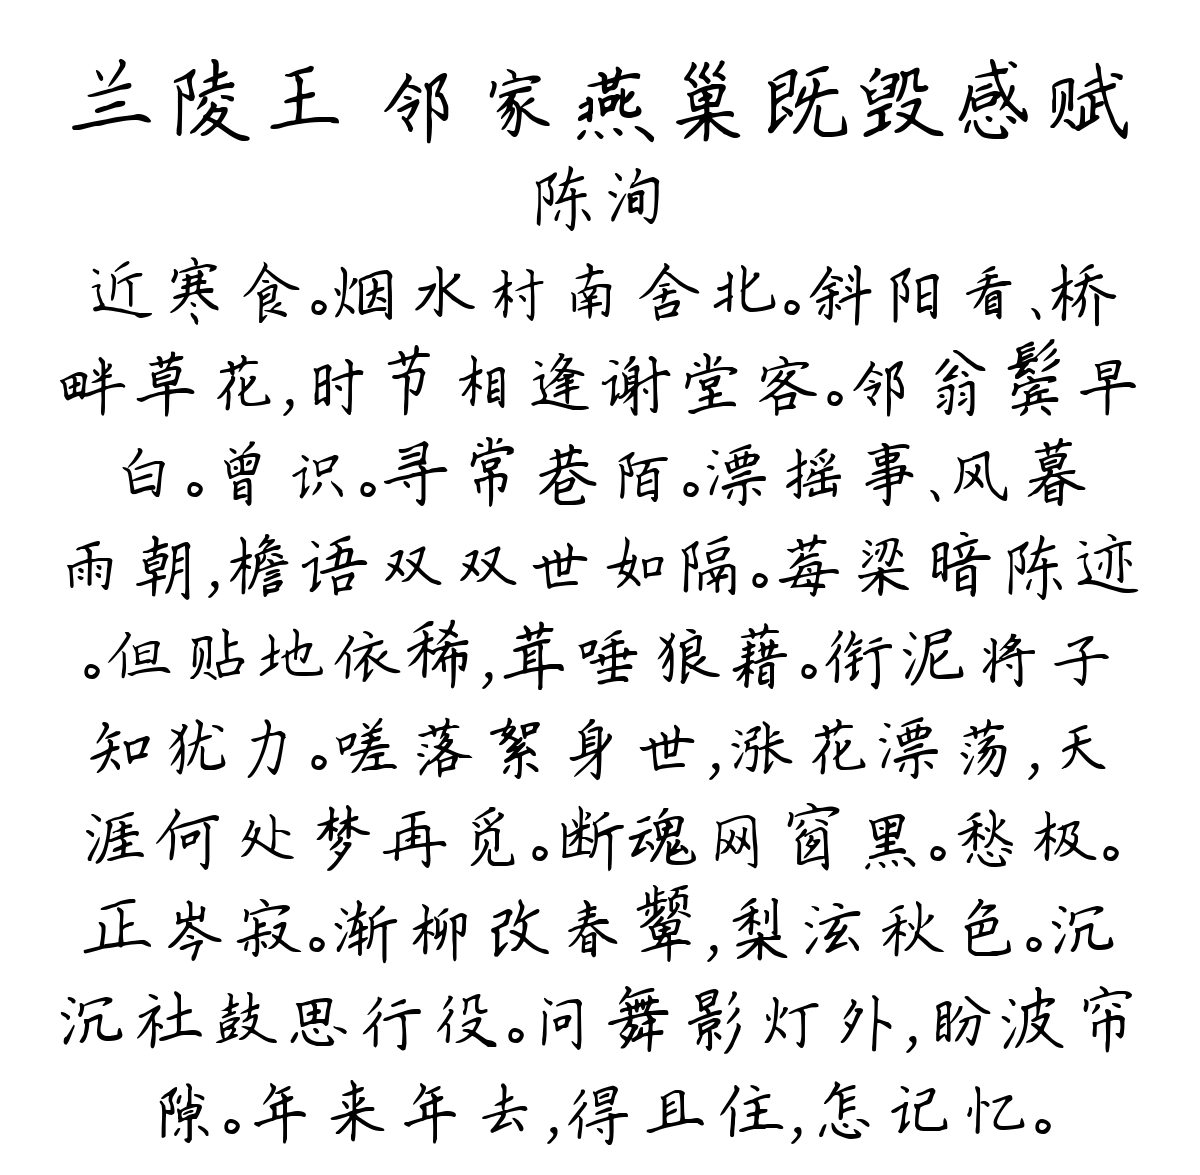 兰陵王 邻家燕巢既毁感赋
陈洵
近寒食。烟水村南舍北。斜阳看、桥
畔草花,时节相逢谢堂客。邻翁鬓早
白。曾识。寻常巷陌。漂摇事、风暮
雨朝,檐语双双世如隔。莓梁暗陈迹
。但贴地依稀,茸唾狼藉。衔泥将子
知犹力。嗟落絮身世,涨花漂荡,天
涯何处梦再觅。断魂网窗黑。愁极。
正岑寂。渐柳改春颦,梨泫秋色。沉
沉社鼓思行役。问舞影灯外,盼波帘
隙。年来年去,得且住,怎记忆。